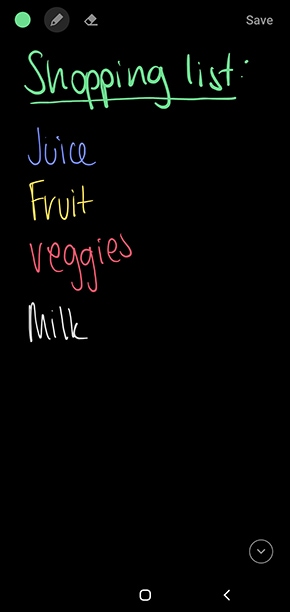 Save
Shopping list:
Juice
Fruit
Veggies
Milk